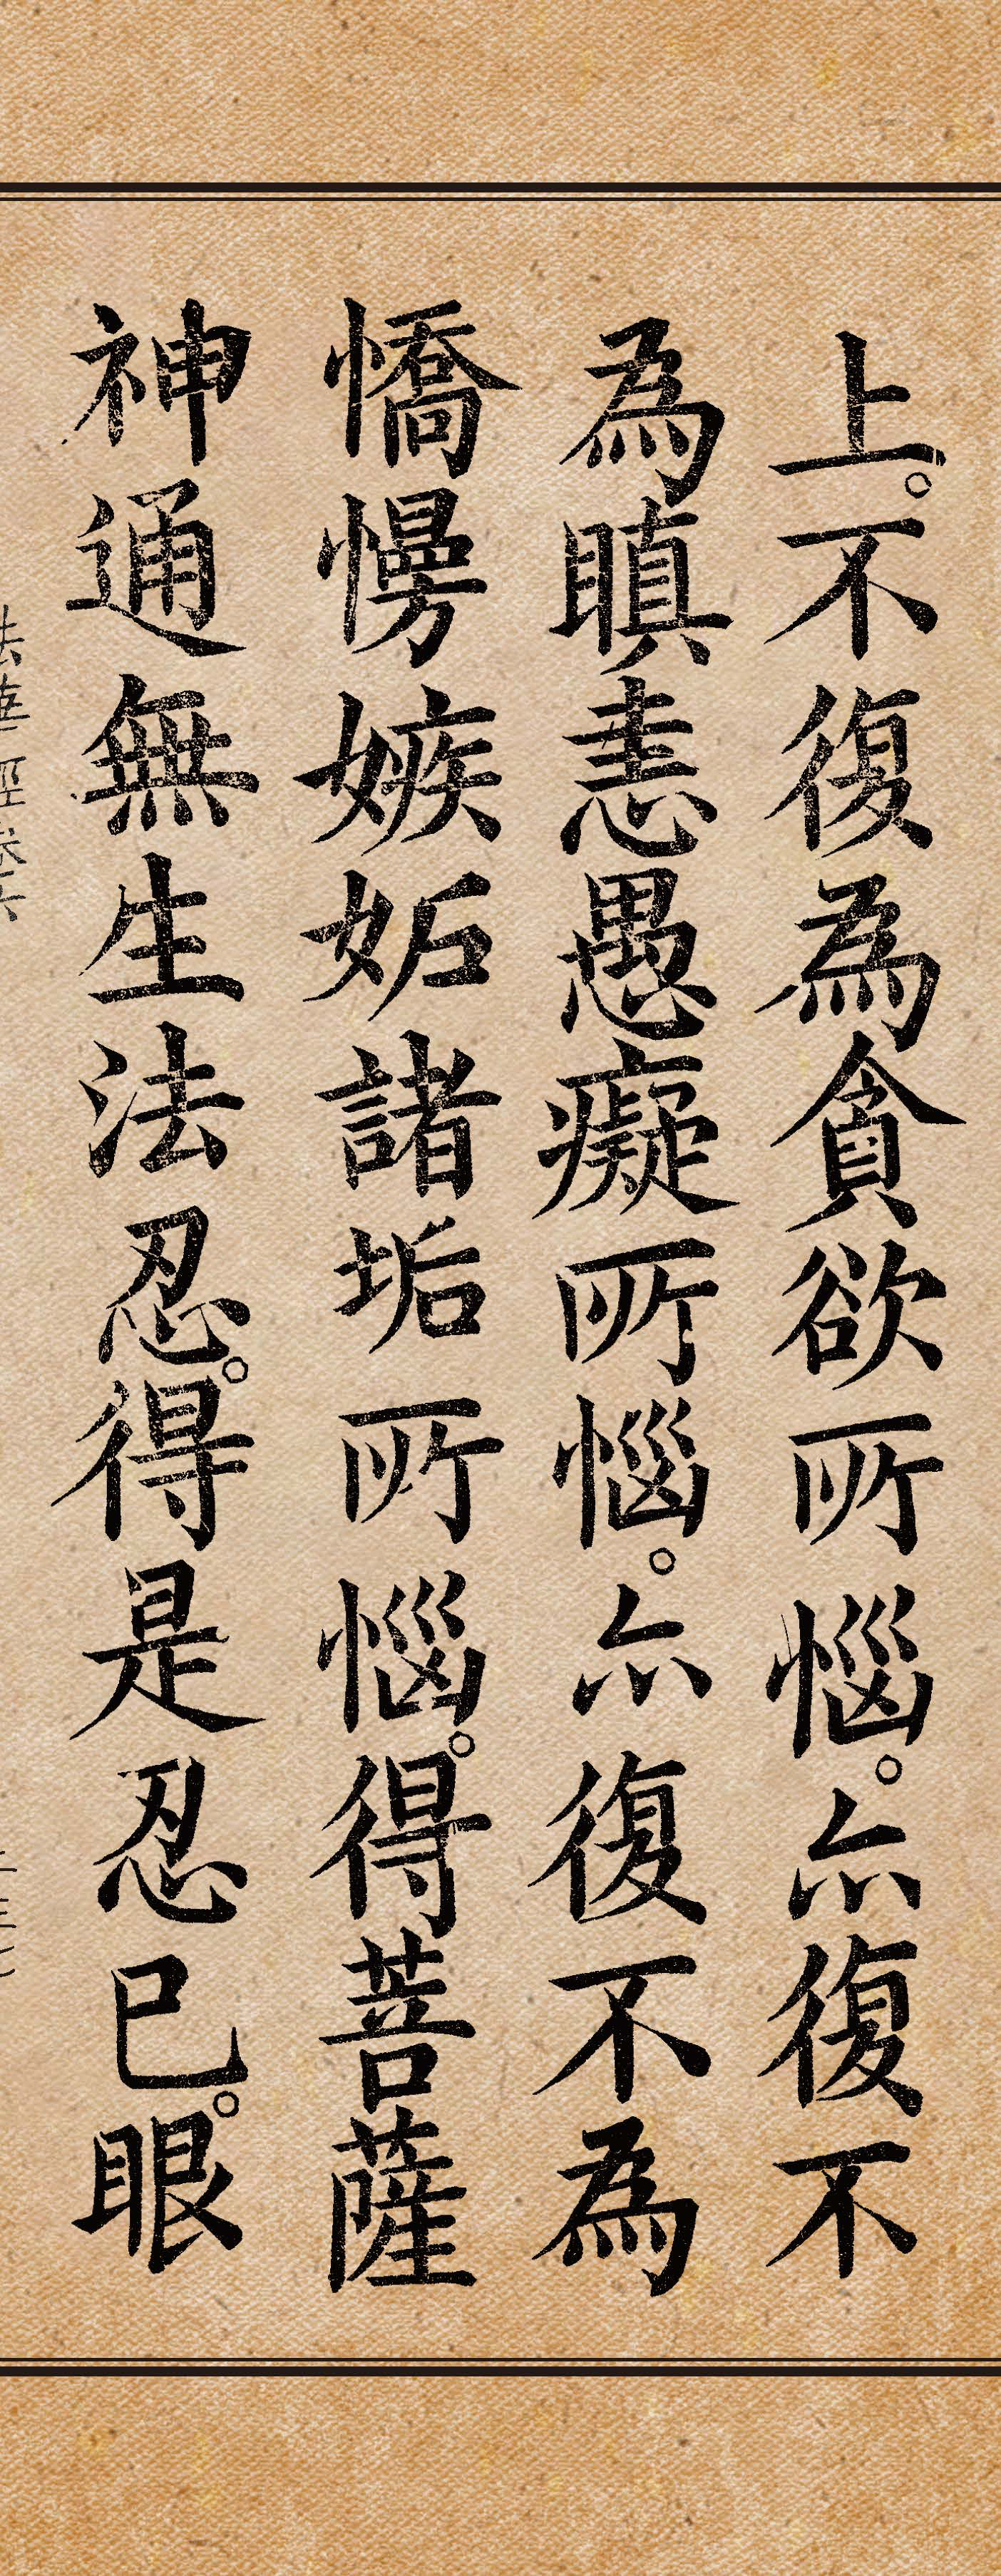 上。不復為貪欲所惱。亦復不
為瞋恚愚癡所惱。亦復不為
憍慢嫉妬諸垢所惱。得菩薩
神通無生法忍。得是忍已。眼
法華經卷六